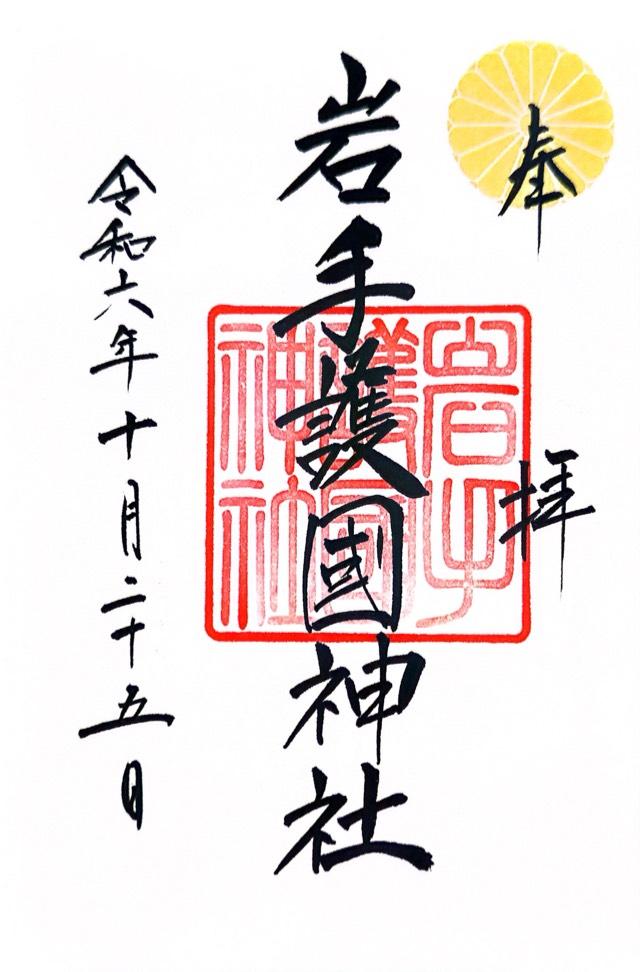 奉拝
岩手護國神社
岩手
護國
神社
令和六年十月二十五日